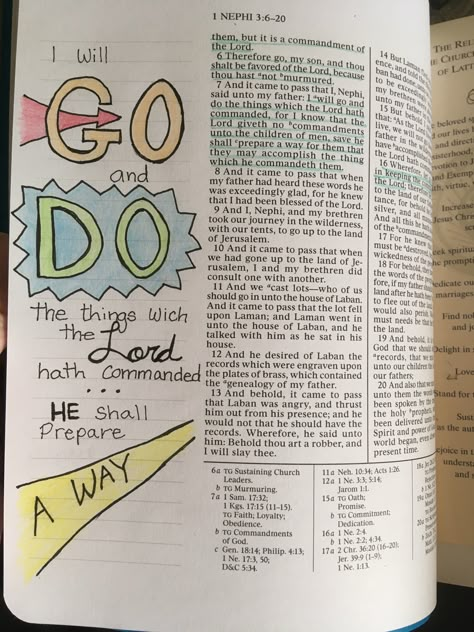 1 NEPHI 3:6–20
I Will
GO
and
DO
the things wich
the Lord
hath Commanded
...
HE shall
Prepare
A WAY
them, but it is a commandment of
the Lord.
6 Therefore go, my son, and thou
shalt be favored of the Lord, because
thou hast ᵃnot ᵇmurmured.
7 And it came to pass that I, Nephi,
said unto my father: I ᵃwill go and
do the things which the Lord hath
commanded, for I know that the
Lord giveth no ᵇcommandments
unto the children of men, save he
shall ᶜprepare a way for them that
they may accomplish the thing
which he commandeth them.
8 And it came to pass that when
my father had heard these words he
was exceedingly glad, for he knew
that I had been blessed of the Lord.
9 And I, Nephi, and my brethren
took our journey in the wilderness,
with our tents, to go up to the land
of Jerusalem.
10 And it came to pass that when
we had gone up to the land of Je-
rusalem, I and my brethren did
consult one with another.
11 And we ᵃcast lots—who of us
should go in unto the house of Laban.
And it came to pass that the lot fell
upon Laman; and Laman went in
unto the house of Laban, and he
talked with him as he sat in his
house.
12 And he desired of Laban the
records which were engraven upon
the plates of brass, which contained
the ᵃgenealogy of my father.
13 And behold, it came to pass
that Laban was angry, and thrust
him out from his presence; and he
would not that he should have the
records. Wherefore, he said unto
him: Behold thou art a robber, and
I will slay thee.
14 But Laman
ence, and told
ban had done
to be exceedingly
my brethren
unto my father
15 But behold
that: ᵃAs the Lor
live, we will not
our father
have ᵇaccomplished
the Lord hath
16 Wherefore
in keeping the
the Lord; therefore
to the land of our
tance, for behold
silver, and all
And all this he
of the ᵇcommand
17 For he knew
must be ᵃdestroyed,
wickedness of the
18 For behold,
the words of the
fore, if my father
land after he hath
to flee out of the
would also perish.
must needs be that
the land.
19 And behold, it
God that we should
ᵃrecords, that we
unto our children
our fathers;
20 And also that we
unto them the words
been spoken by the
the holy ᵃprophets,
been delivered unto
Spirit and power of
world began, even
present time.
6a TG Sustaining Church
Leaders.
b TG Murmuring.
7a 1 Sam. 17:32;
1 Kgs. 17:15 (11–15).
TG Faith; Loyalty;
Obedience.
b TG Commandments
of God.
c Gen. 18:14; Philip. 4:13;
1 Ne. 17:3, 50;
D&C 5:34.
11a Neh. 10:34; Acts 1:26.
12a 1 Ne. 3:3; 5:14;
Jarom 1:1.
15a TG Oath;
Promise.
b TG Commitment;
Dedication.
16a 1 Ne. 2:4.
b 1 Ne. 2:2; 4:34.
17a 2 Chr. 36:20 (16–20);
Jer. 39:9 (1–9);
1 Ne. 1:13.
18a
19a
20a
THE
THE CHURCH
OF LATT